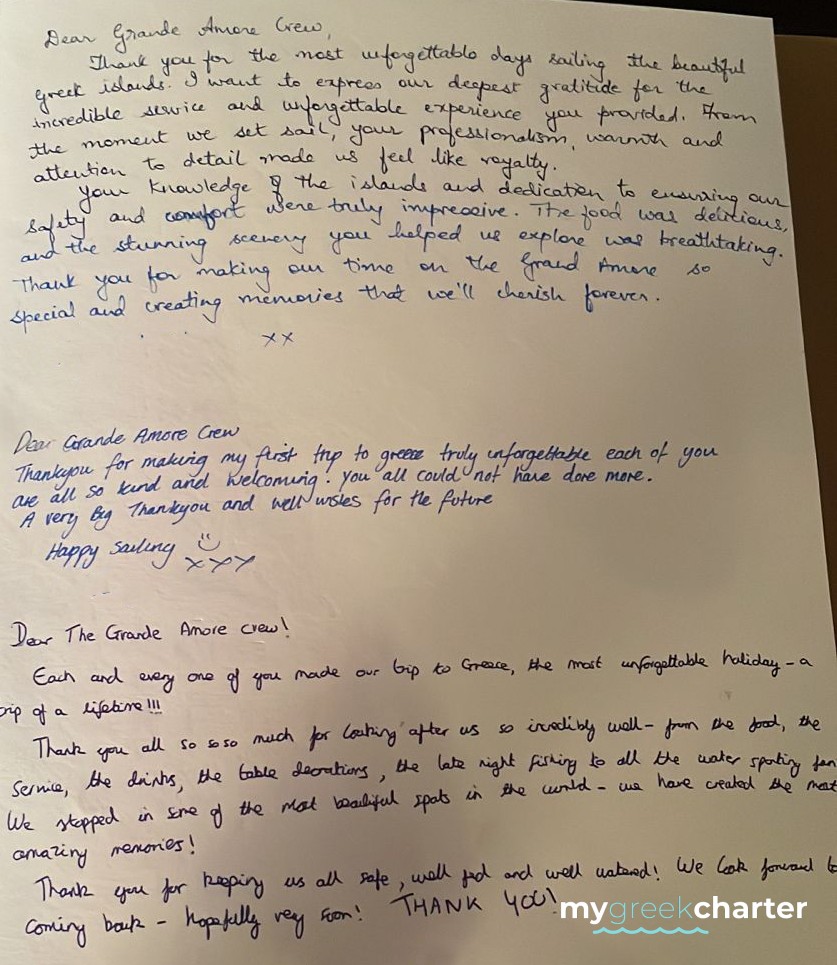 Dear Grande Amore Crew,
Thank you for the most unforgettable days sailing the beautiful
greek islands. I want to express our deepest gratitide for the
incredible service and unforgettable experience you provided. From
the moment we set sail, your professionalism, warmth and
attention to detail made us feel like royalty.
Your knowledge of the islands and dedication to ensuring our
safety and comfort were truly impressive. The food was delicious,
and the stunning scenery you helped us explore was breathtaking.
Thank you for making our time on the Grand Amore so
special and creating memories that we'll cherish forever.
xx
Dear Grande Amore Crew
Thankyou for making my first trip to greece truly unforgettable each of you
are all so kind and welcoming. you all could not have done more.
A very Big Thankyou and well wishes for the future
Happy Sailing
xxx
Dear The Grande Amore crew!
Each and every one of you made our trip to Greece, the most unforgettable holiday - a
trip of a lifetime!!!
Thank you all so soso much for looking after us so incredibly well - from the food, the
service, the drinks, the table decorations, the late night fishing to all the water sporting fun
We stopped in some of the most beautiful spots in the world - we have created the most
amazing memories!
Thank you for keeping us all safe, well fed and well watered! We look forward to
coming back - hopefully very soon! THANK YOU!
mygreekcharter